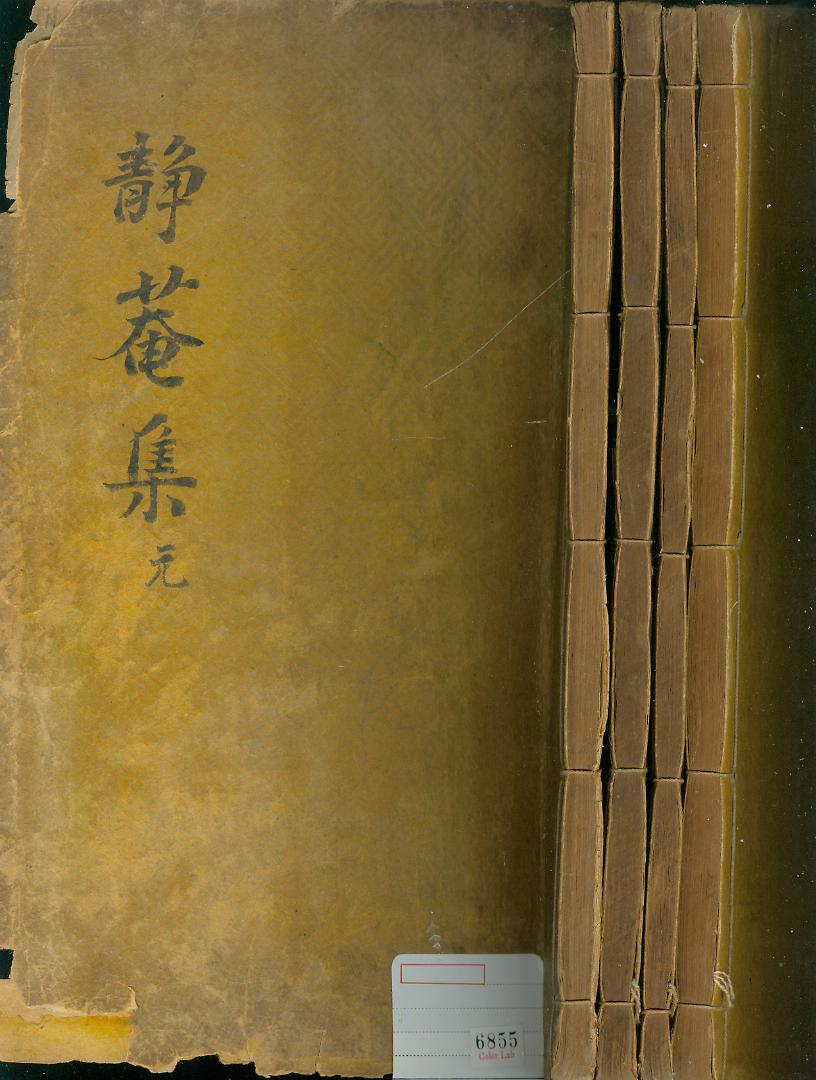 静菴集 元
6855
Color Lab